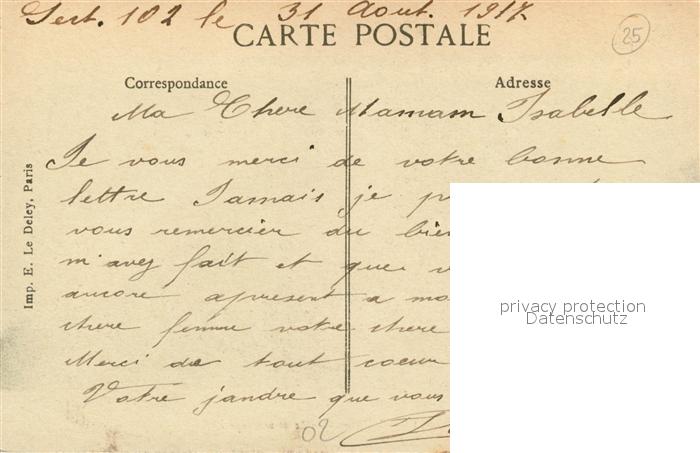 Sect. 102 le 31 Aout. 1917
25
CARTE POSTALE
Correspondance
Adresse
Ma Chere Mamam Isabelle
Je vous merci de votre bonne
lettre Jamais je
vous remercier du
m'avez fait et que
ancore apresent a
chere femme votre chere
Merci de tout coeur
Votre jandre que vous
02
Imp. E. Le Deley, Paris
privacy protection
Datenschutz